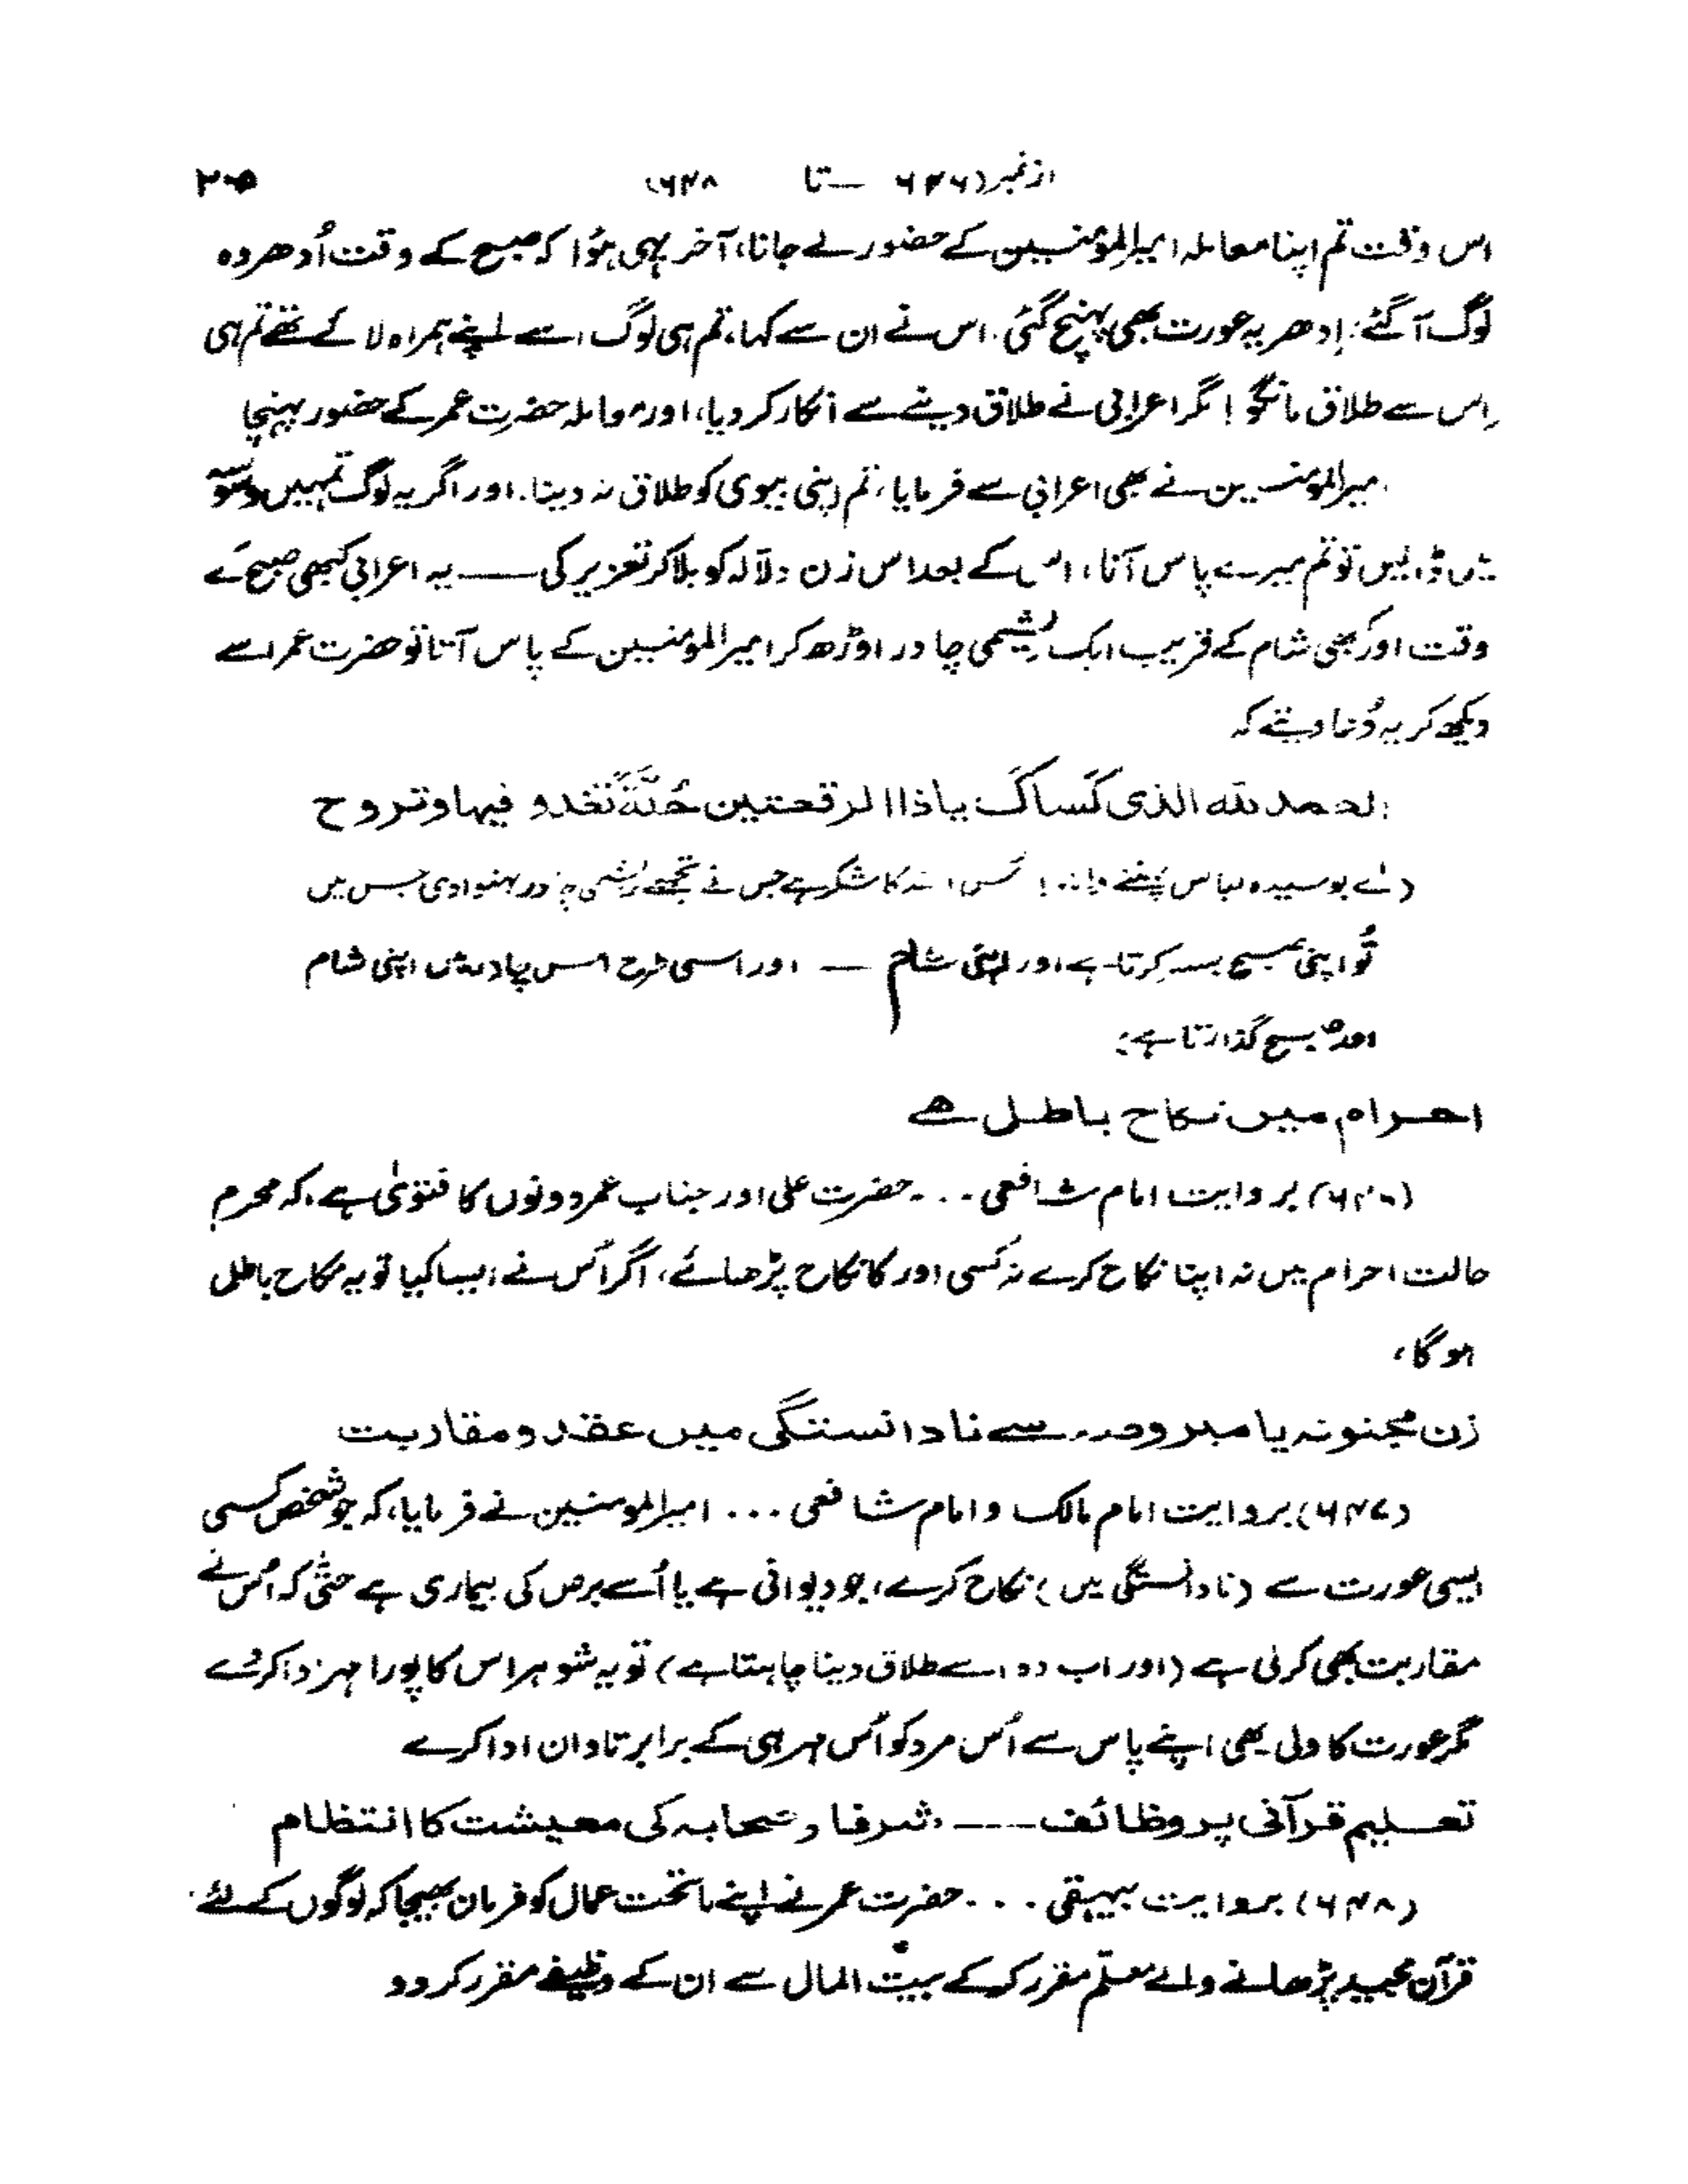 ازنمبر (۶۴۶ — تا ۶۴۸) ۲۰۵
اس وقت تم اپنا معاملہ امیرالمؤمنین کے حضور لے جانا، آخر یہی ہؤا کہ صبح کے وقت اُدھر وہ
لوگ آگئے: اِدھر یہ عورت بھی پہنچ گئی. اس نے ان سے کہا، تم ہی لوگ اسے اپنے ہمراہ لائے تھے تم ہی
اِس سے طلاق مانگو! مگر اعرابی نے طلاق دینے سے انکار کر دیا، اور معاملہ حضرت عمر کے حضور پہنچا
امیرالمؤمنین نے بھی اعرابی سے فرمایا، تم اپنی بیوی کو طلاق نہ دینا. اور اگر یہ لوگ تمہیں وسوسہ
میں ڈالیں تو تم میرے پاس آنا، اس کے بعد اس زن دلّالہ کو بلا کر تعزیر کی —— یہ اعرابی کبھی صبح کے
وقت اور کبھی شام کے قریب ایک ریشیمی چادر اوڑھ کر امیرالمؤمنین کے پاس آتا تو حضرت عمر اسے
دیکھ کر یہ دُعا دیتے کہ
الحمد للہ الذی کَساکَ یا ذا الرقعتین حُلَّۃً تغدو فیہا وتروح
(اے بوسیدہ لباس پہننے والے! اُس اللہ کا شکر ہے جس نے تجھے ریشمی چادر پہنوا دی جس میں
تُو اپنی صبح بسر کرتا ہے اور اپنی شام — اور اسی طرح اس چادر میں اپنی شام
اور صبح گذارتا ہے؛
احرام میں نکاح باطل ہے
(۶۴۶) بروایت امام شافعی ... حضرت علی اور جناب عمر دونوں کا فتویٰ ہے، کہ محرم
حالت احرام میں نہ اپنا نکاح کرے نہ کسی اور کا نکاح پڑھائے، اگر اُس نے ایسا کیا تو یہ نکاح باطل
ہوگا،
زن مجنونہ یا مبروصہ سے نادانستگی میں عقد و مقاربت
(۶۴۷) بروایت امام مالک و امام شافعی ... امیرالمومنین نے فرمایا، کہ جو شخص کسی
ایسی عورت سے (نادانستگی میں) نکاح کرے، جو دیوانی ہے یا اُسے برص کی بیماری ہے حتّٰی کہ اُس نے
مقاربت بھی کرلی ہے (اور اب وہ اسے طلاق دینا چاہتا ہے) تو یہ شوہر اس کا پورا مہر ادا کردے
مگر عورت کا ولی بھی اپنے پاس سے اُس مرد کو اُس مہر ہی کے برابر تاوان ادا کرے
تعلیم قرآنی پر وظائف ---- شرفاء و صحابہ کی معیشت کا انتظام
(۶۴۸) بروایت بیہقی ... حضرت عمر نے اپنے ماتحت عمال کو فرمان بھیجا کہ لوگوں کے لئے
قرآن مجید پڑھانے والے معلّم مقرر کرکے بیت المال سے ان کے وظیفے مقرر کر دو